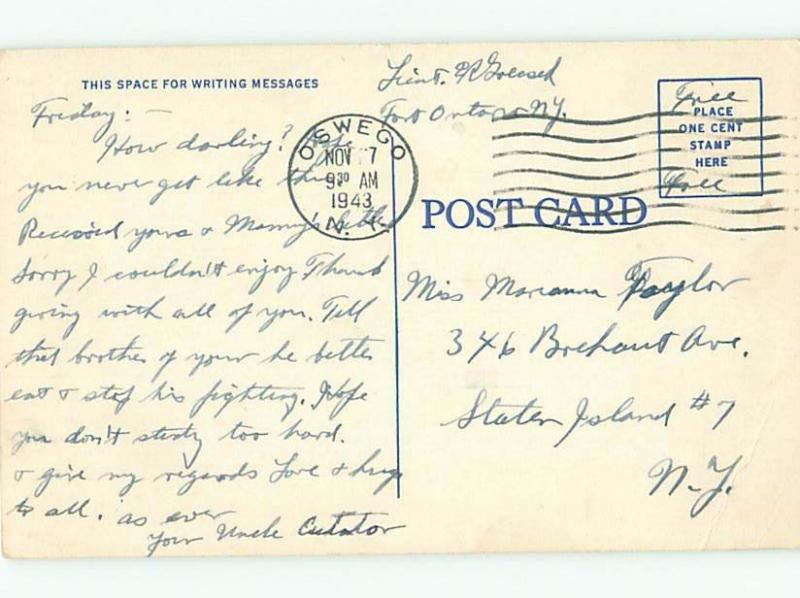 THIS SPACE FOR WRITING MESSAGES
Friday: —
How darling? Hope
you never get like this
Received yours & Mammy's letter
Sorry I couldn't enjoy Thanks
giving with all of you. Tell
that brother of your he better
eat & stop his fighting. Hope
you don't study too hard.
& give my regards Love & hugs
to all. as ever
Your Uncle
OSWEGO
NOV 7
9 30 AM
1943
N. Y.
Lieut.
Fort Ontario N.Y.
Free
PLACE
ONE CENT
STAMP
HERE
Free
POST CARD
Miss Marianna Taylor
346 Ave.
Staten Island #7
N.Y.